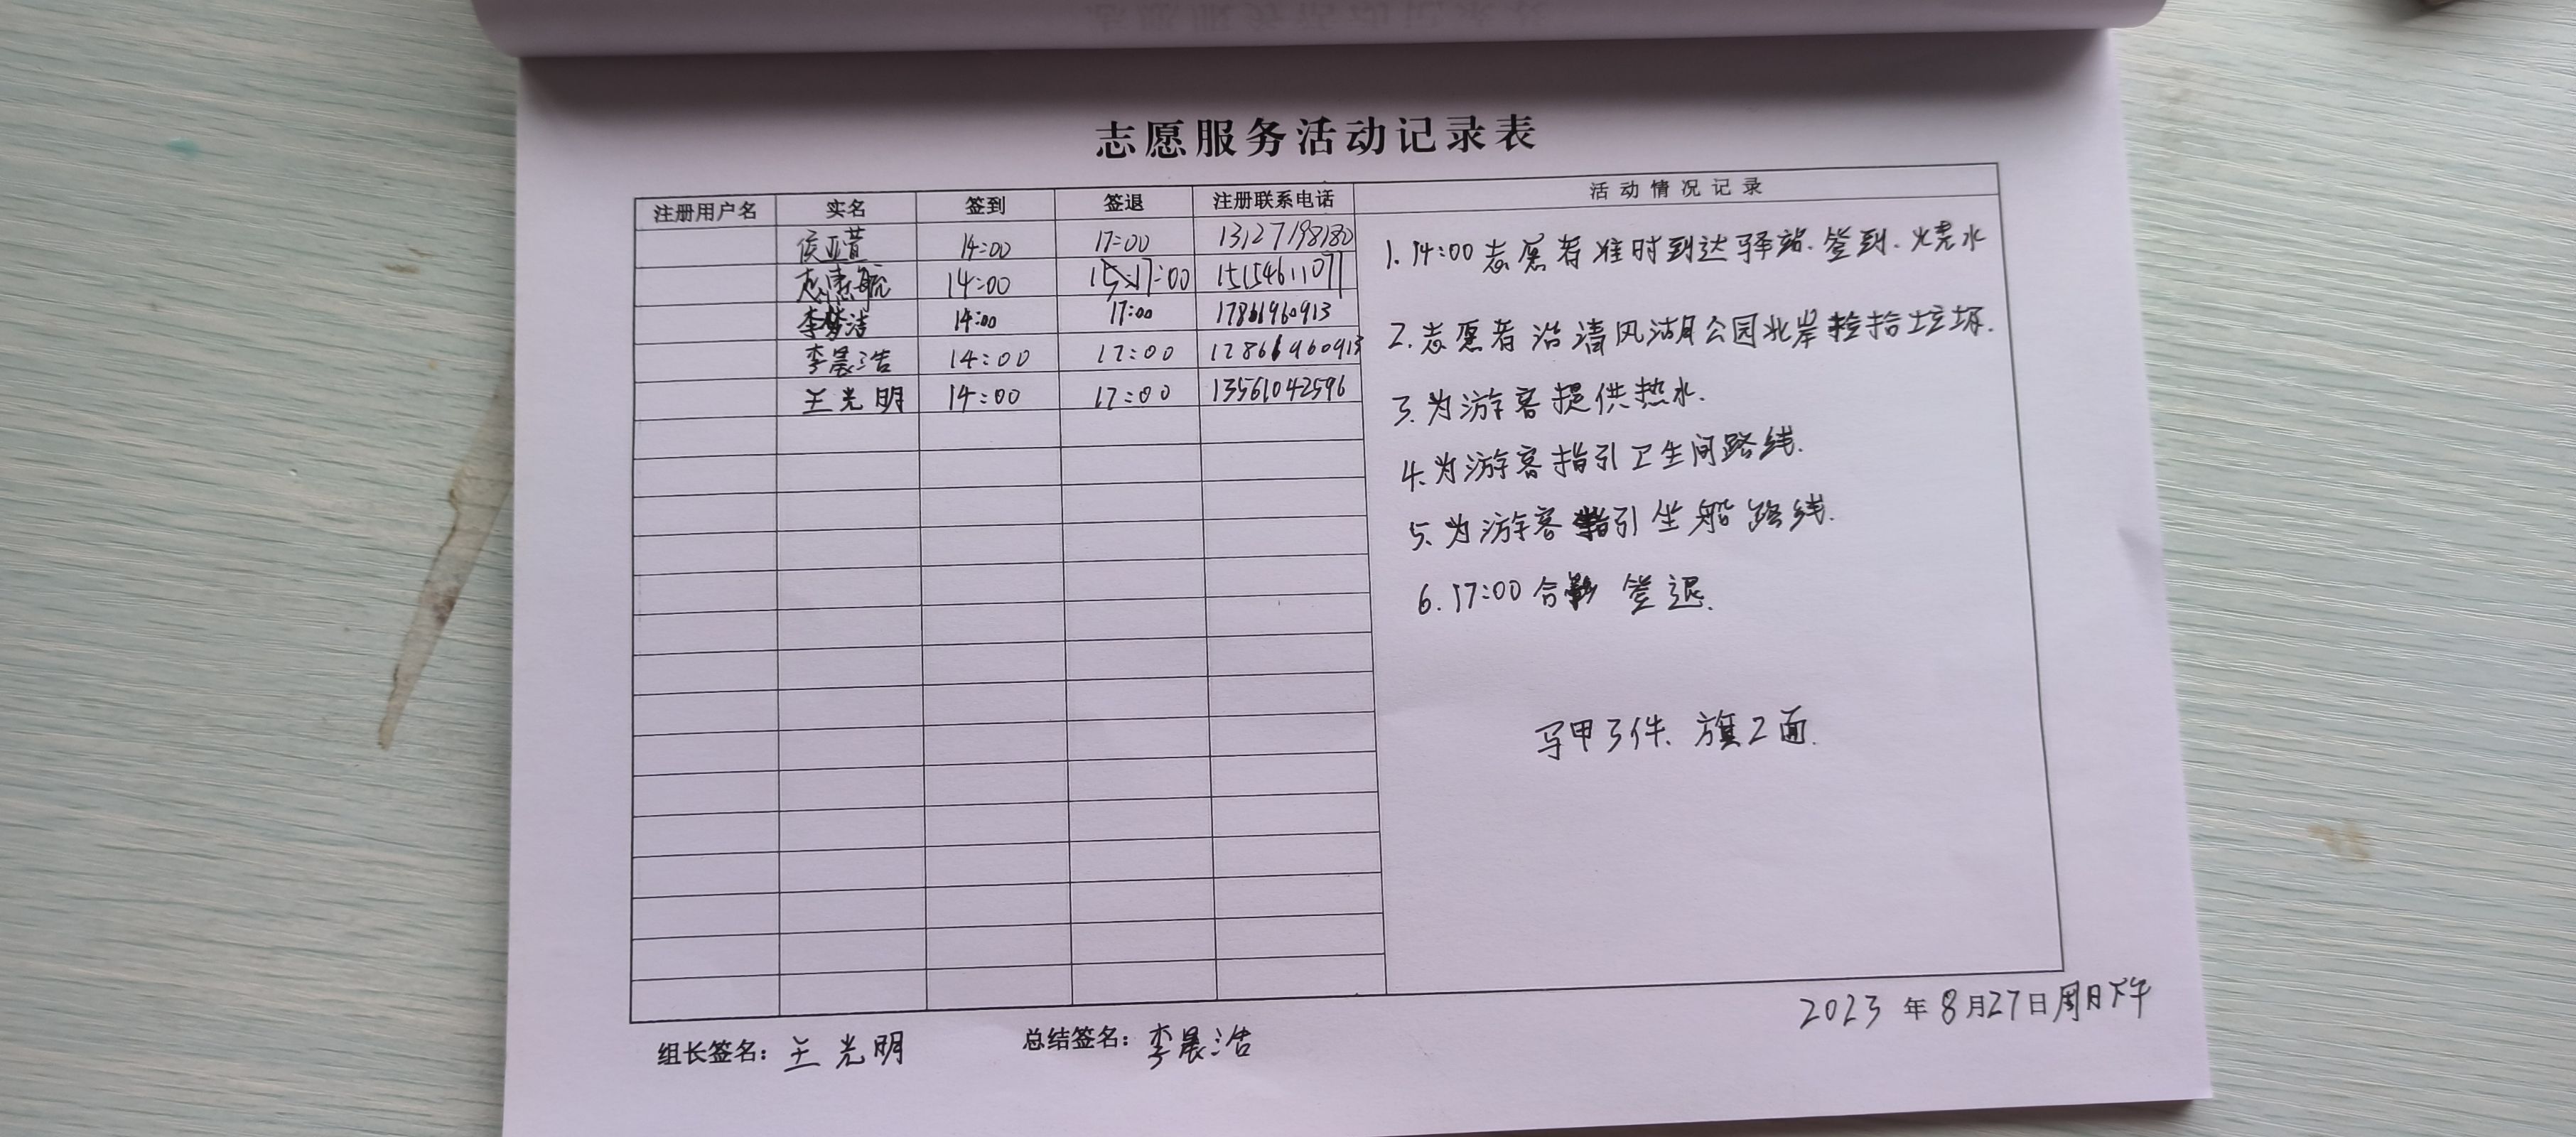 志愿服务活动记录表
注册用户名 实名 签到 签退 注册联系电话 活动情况记录
侯亚昔 14:00 17:00 13127198180
14:00 17:00 15154611077
李梦洁 14:00 17:00 17861960913
李晨浩 14:00 17:00 17861960913
王光明 14:00 17:00 13561042596
1. 14:00 志愿者准时到达驿站.签到.烧水
2. 志愿者沿清风湖公园北岸捡拾垃圾.
3. 为游客提供热水.
4. 为游客指引卫生间路线.
5. 为游客指引坐船路线.
6. 17:00 合影 签退.
马甲3件、旗2面.
2023年8月27日周日下午
组长签名：王光明 总结签名：李晨浩